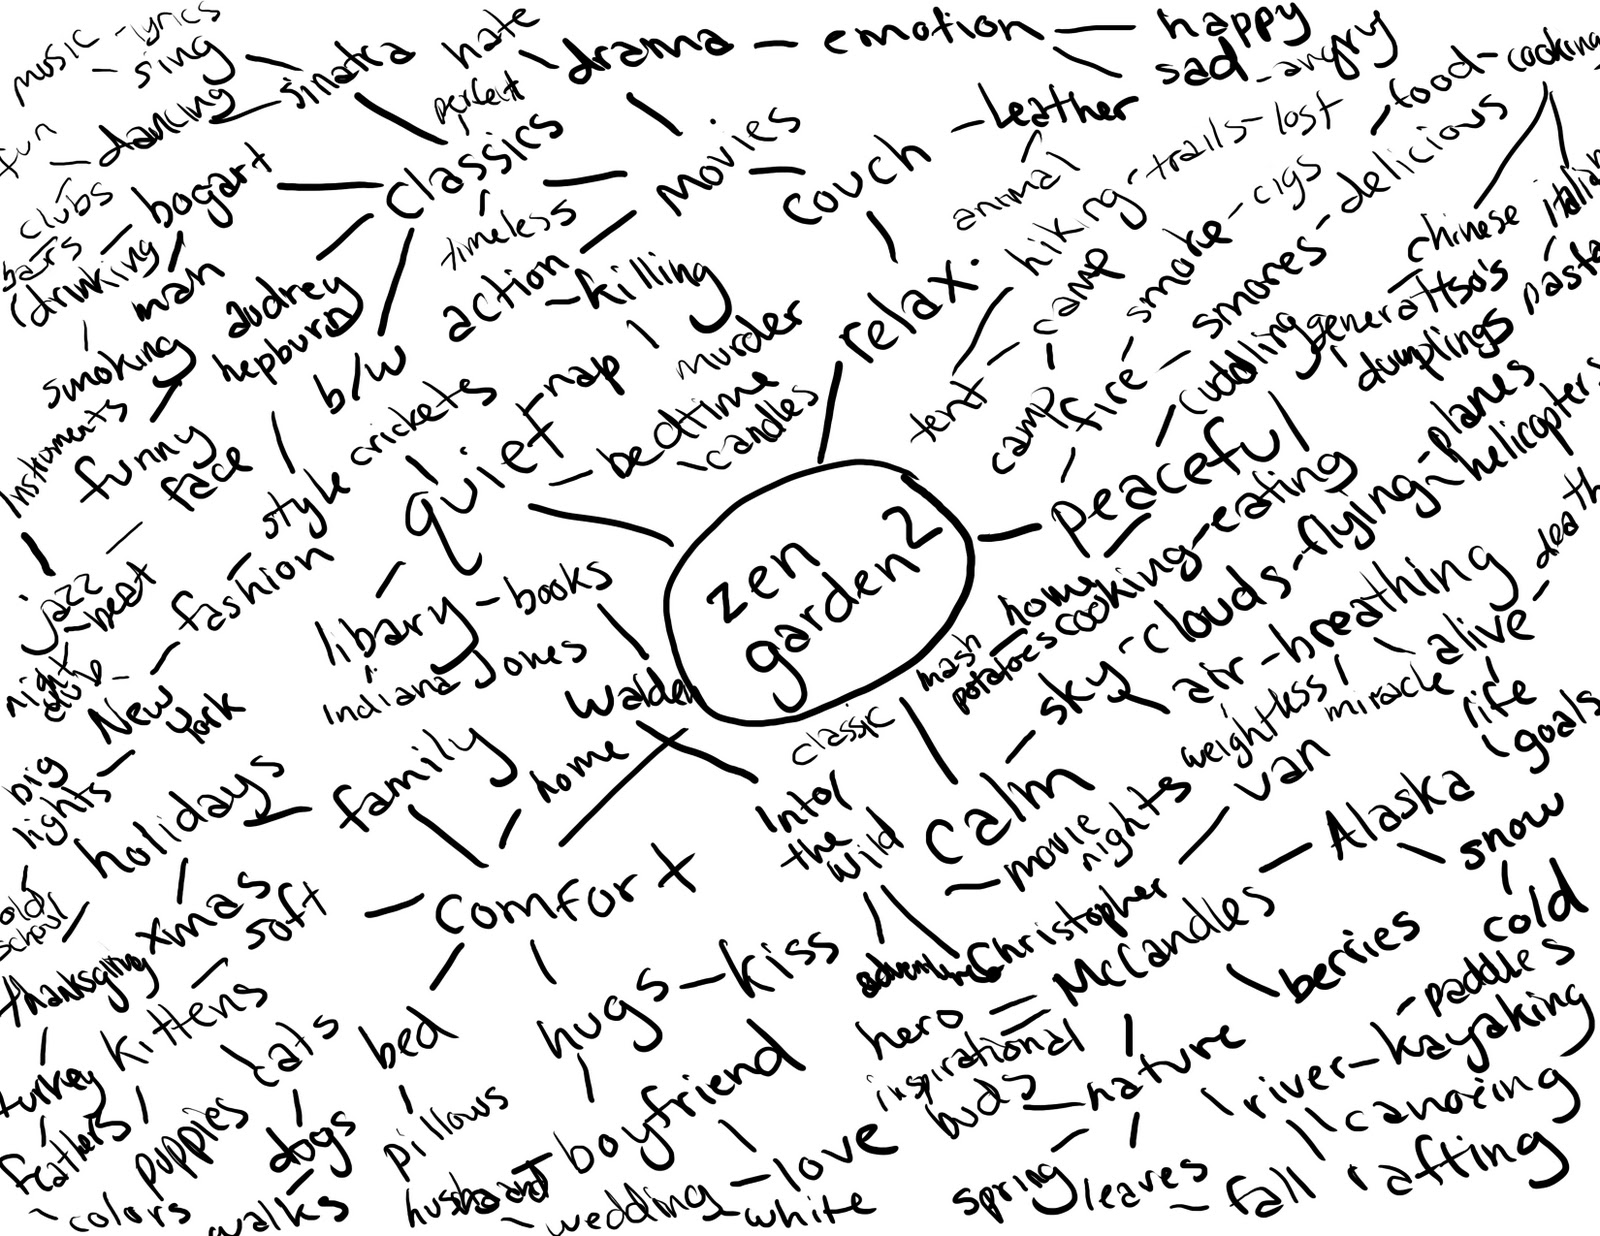 music - lyrics
- sing
sinatra
hate
drama - emotion
happy
sad - angry
fun
dancing
perfect
classics
movies
couch
leather
animal
food - cooking
clubs
bars
bogart
drinking
man
smoking
timeless
action
killing
murder
audrey
hepburn
b/w
relax.
hiking - trails - lost
tent
camp
camp
fire
smoke - cigs
smores - delicious
cuddling
chinese
italian
general tso's
dumplings
pasta
instruments
funny
face
style
crickets
quiet
nap
bedtime
candles
jazz
beat
fashion
night
club
New
York
big
lights
old
school
libary - books
Indiana Jones
Walden
zen
garden²
peaceful
home
cooking - eating
mash
potatoes
sky - clouds - flying - planes
helicopters
air - breathing
death
alive
miracle
weightless
life
goals
classic
Into
the
wild
calm
movie
nights
van
Alaska
snow
cold
holidays
family
home
comfort
soft
xmas
thanksgiving
turkey
feathers
colors
kittens
cats
puppies
dogs
walks
bed
pillows
hugs - kiss
boyfriend
husband
wedding
white
love
adventures
Christopher
McCandles
hero
inspirational
berries
nature
buds
spring
leaves
fall
river - kayaking
paddles
canoeing
rafting